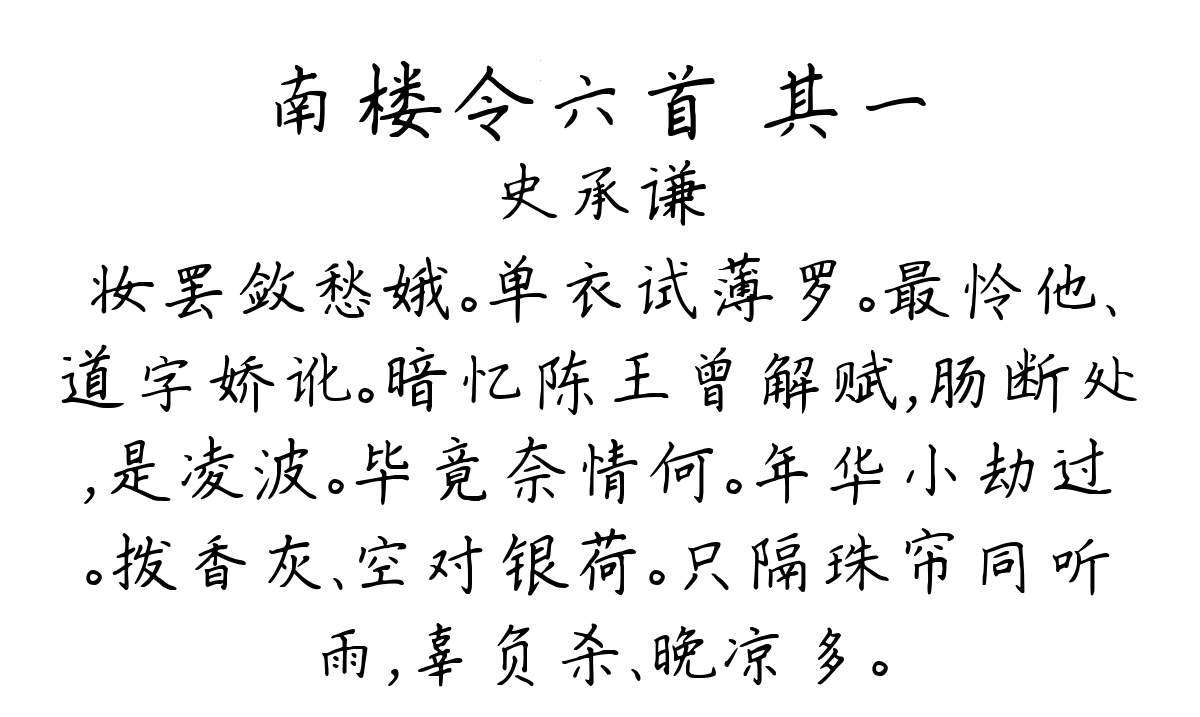 南楼令六首 其一
史承谦
妆罢敛愁娥。单衣试薄罗。最怜他、
道字娇讹。暗忆陈王曾解赋,肠断处
,是凌波。毕竟奈情何。年华小劫过
。拨香灰、空对银荷。只隔珠帘同听
雨,辜负杀、晚凉多。